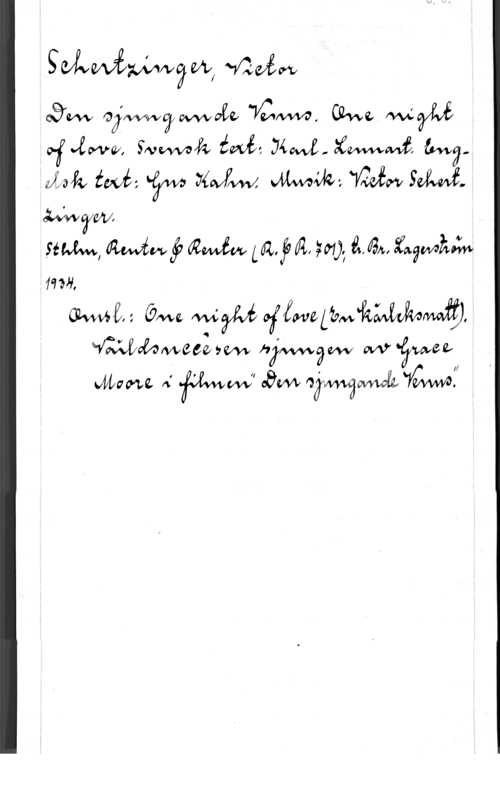 Schertzinger, Victor
Den sjungande Venus. One night
of love. Svensk text: Karl-Lennart. Eng-
elsk text: Gus Kahn. Musik: Victor Schert-
zinger.
Sthlm, Reuter & Reuter (R. & R. 701), tr. Br. Lagerström
1934.
Omsl.: One night of love (En kärleksnatt).
Världssuccèsen sjungen av Grace
Moore i filmen "Den sjungande Venus."